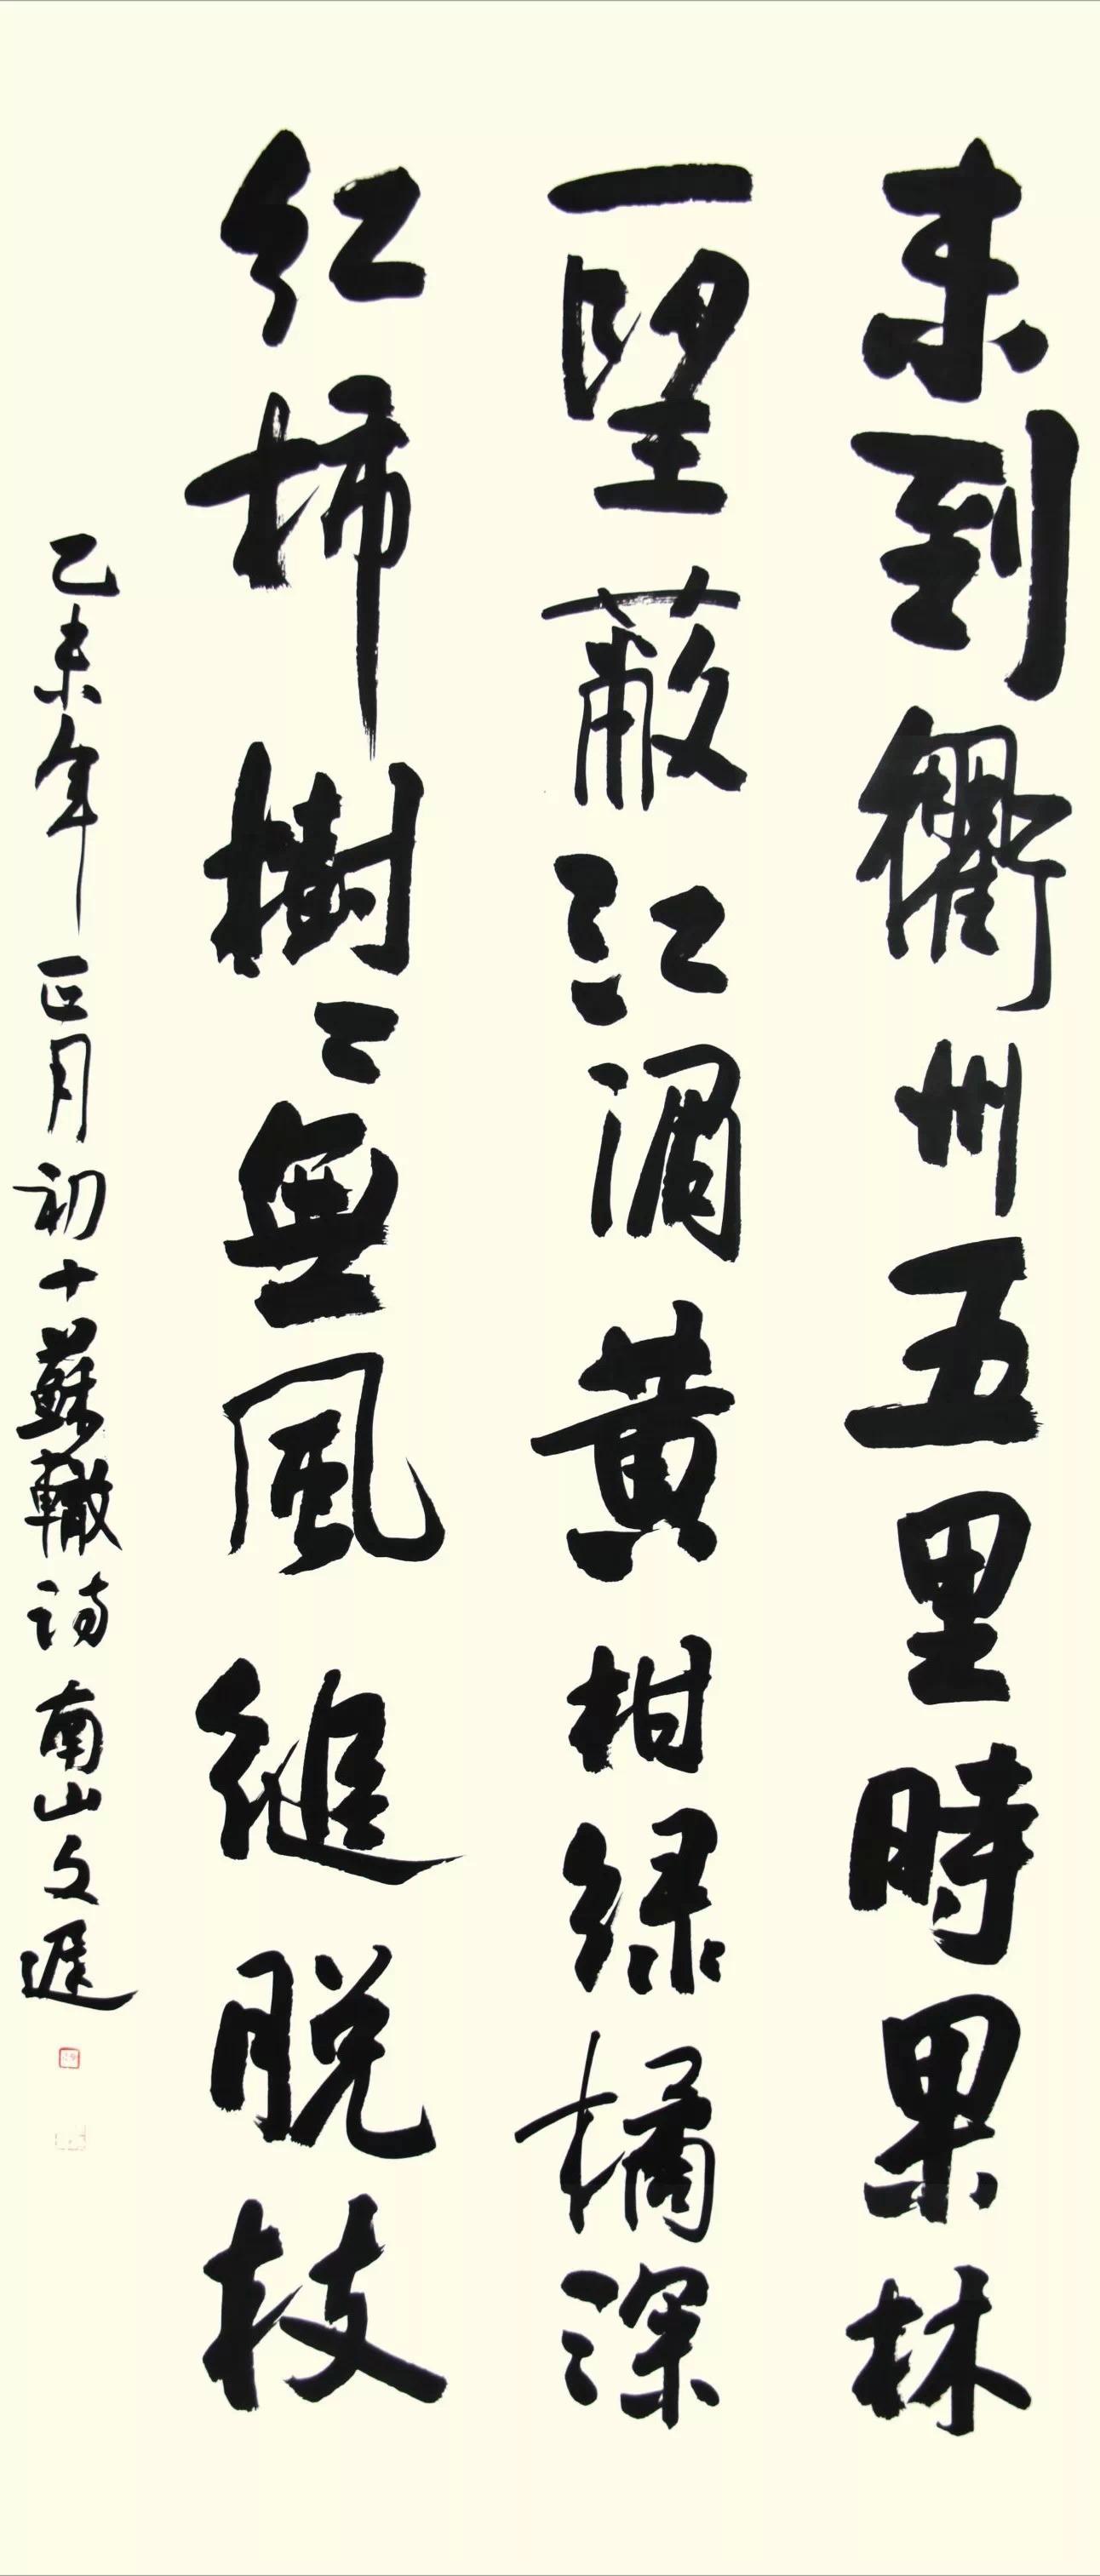 未到衢州五里時果林
一望蔽江湄黄柑緑橘深
紅柿樹〻無風縋脱枝
乙未年正月初十蘇轍詩南山文遲